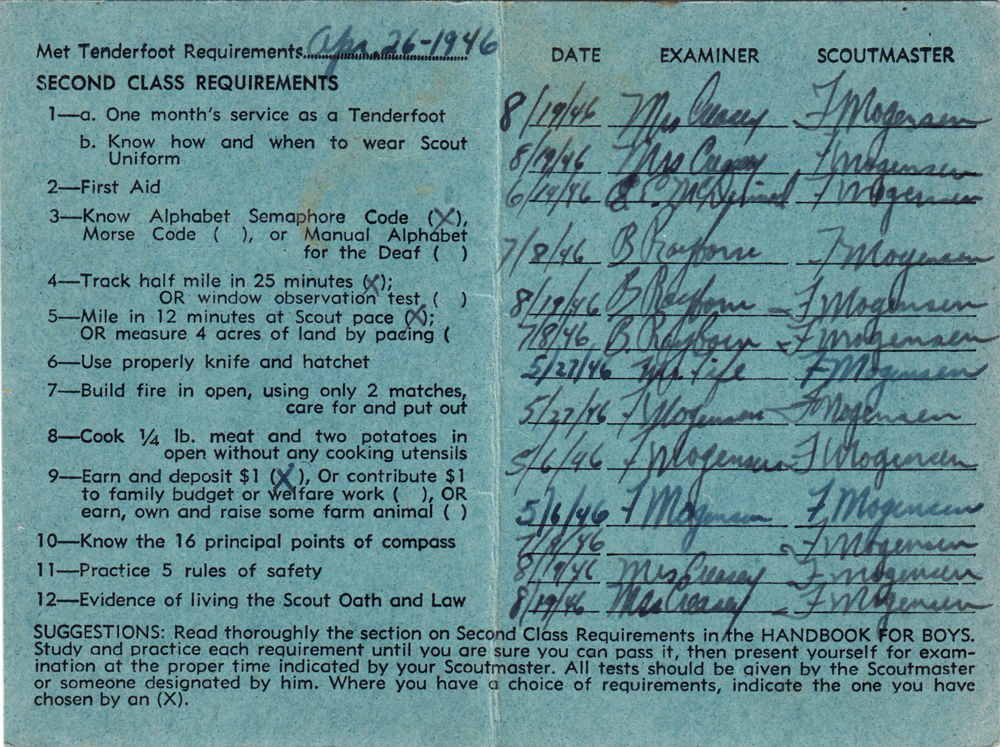 Met Tenderfoot Requirements Apr. 26-1946
SECOND CLASS REQUIREMENTS
1—a. One month's service as a Tenderfoot
b. Know how and when to wear Scout
Uniform
2—First Aid
3—Know Alphabet Semaphore Code (X),
Morse Code ( ), or Manual Alphabet
for the Deaf ( )
4—Track half mile in 25 minutes (X);
OR window observation test ( )
5—Mile in 12 minutes at Scout pace (X);
OR measure 4 acres of land by pacing (
6—Use properly knife and hatchet
7—Build fire in open, using only 2 matches,
care for and put out
8—Cook ¼ lb. meat and two potatoes in
open without any cooking utensils
9—Earn and deposit $1 (X), Or contribute $1
to family budget or welfare work ( ), OR
earn, own and raise some farm animal ( )
10—Know the 16 principal points of compass
11—Practice 5 rules of safety
12—Evidence of living the Scout Oath and Law
DATE EXAMINER SCOUTMASTER
8/19/46 Mrs Creasey F Mogensen
8/19/46 Mrs Creasey F Mogensen
6/14/46 F Mogensen
7/8/46 B Rayborn F Mogensen
8/19/46 B Rayborn F Mogensen
7/8/46 B. Rayborn F Mogensen
5/27/46 Mr. Fife F Mogensen
5/27/46 F Mogensen F Mogensen
5/6/46 F Mogensen F Mogensen
5/6/46 F Mogensen F Mogensen
F Mogensen
8/19/46 Mrs Creasey F Mogensen
8/19/46 Mrs Creasey F Mogensen
SUGGESTIONS: Read thoroughly the section on Second Class Requirements in the HANDBOOK FOR BOYS.
Study and practice each requirement until you are sure you can pass it, then present yourself for exam-
ination at the proper time indicated by your Scoutmaster. All tests should be given by the Scoutmaster
or someone designated by him. Where you have a choice of requirements, indicate the one you have
chosen by an (X).